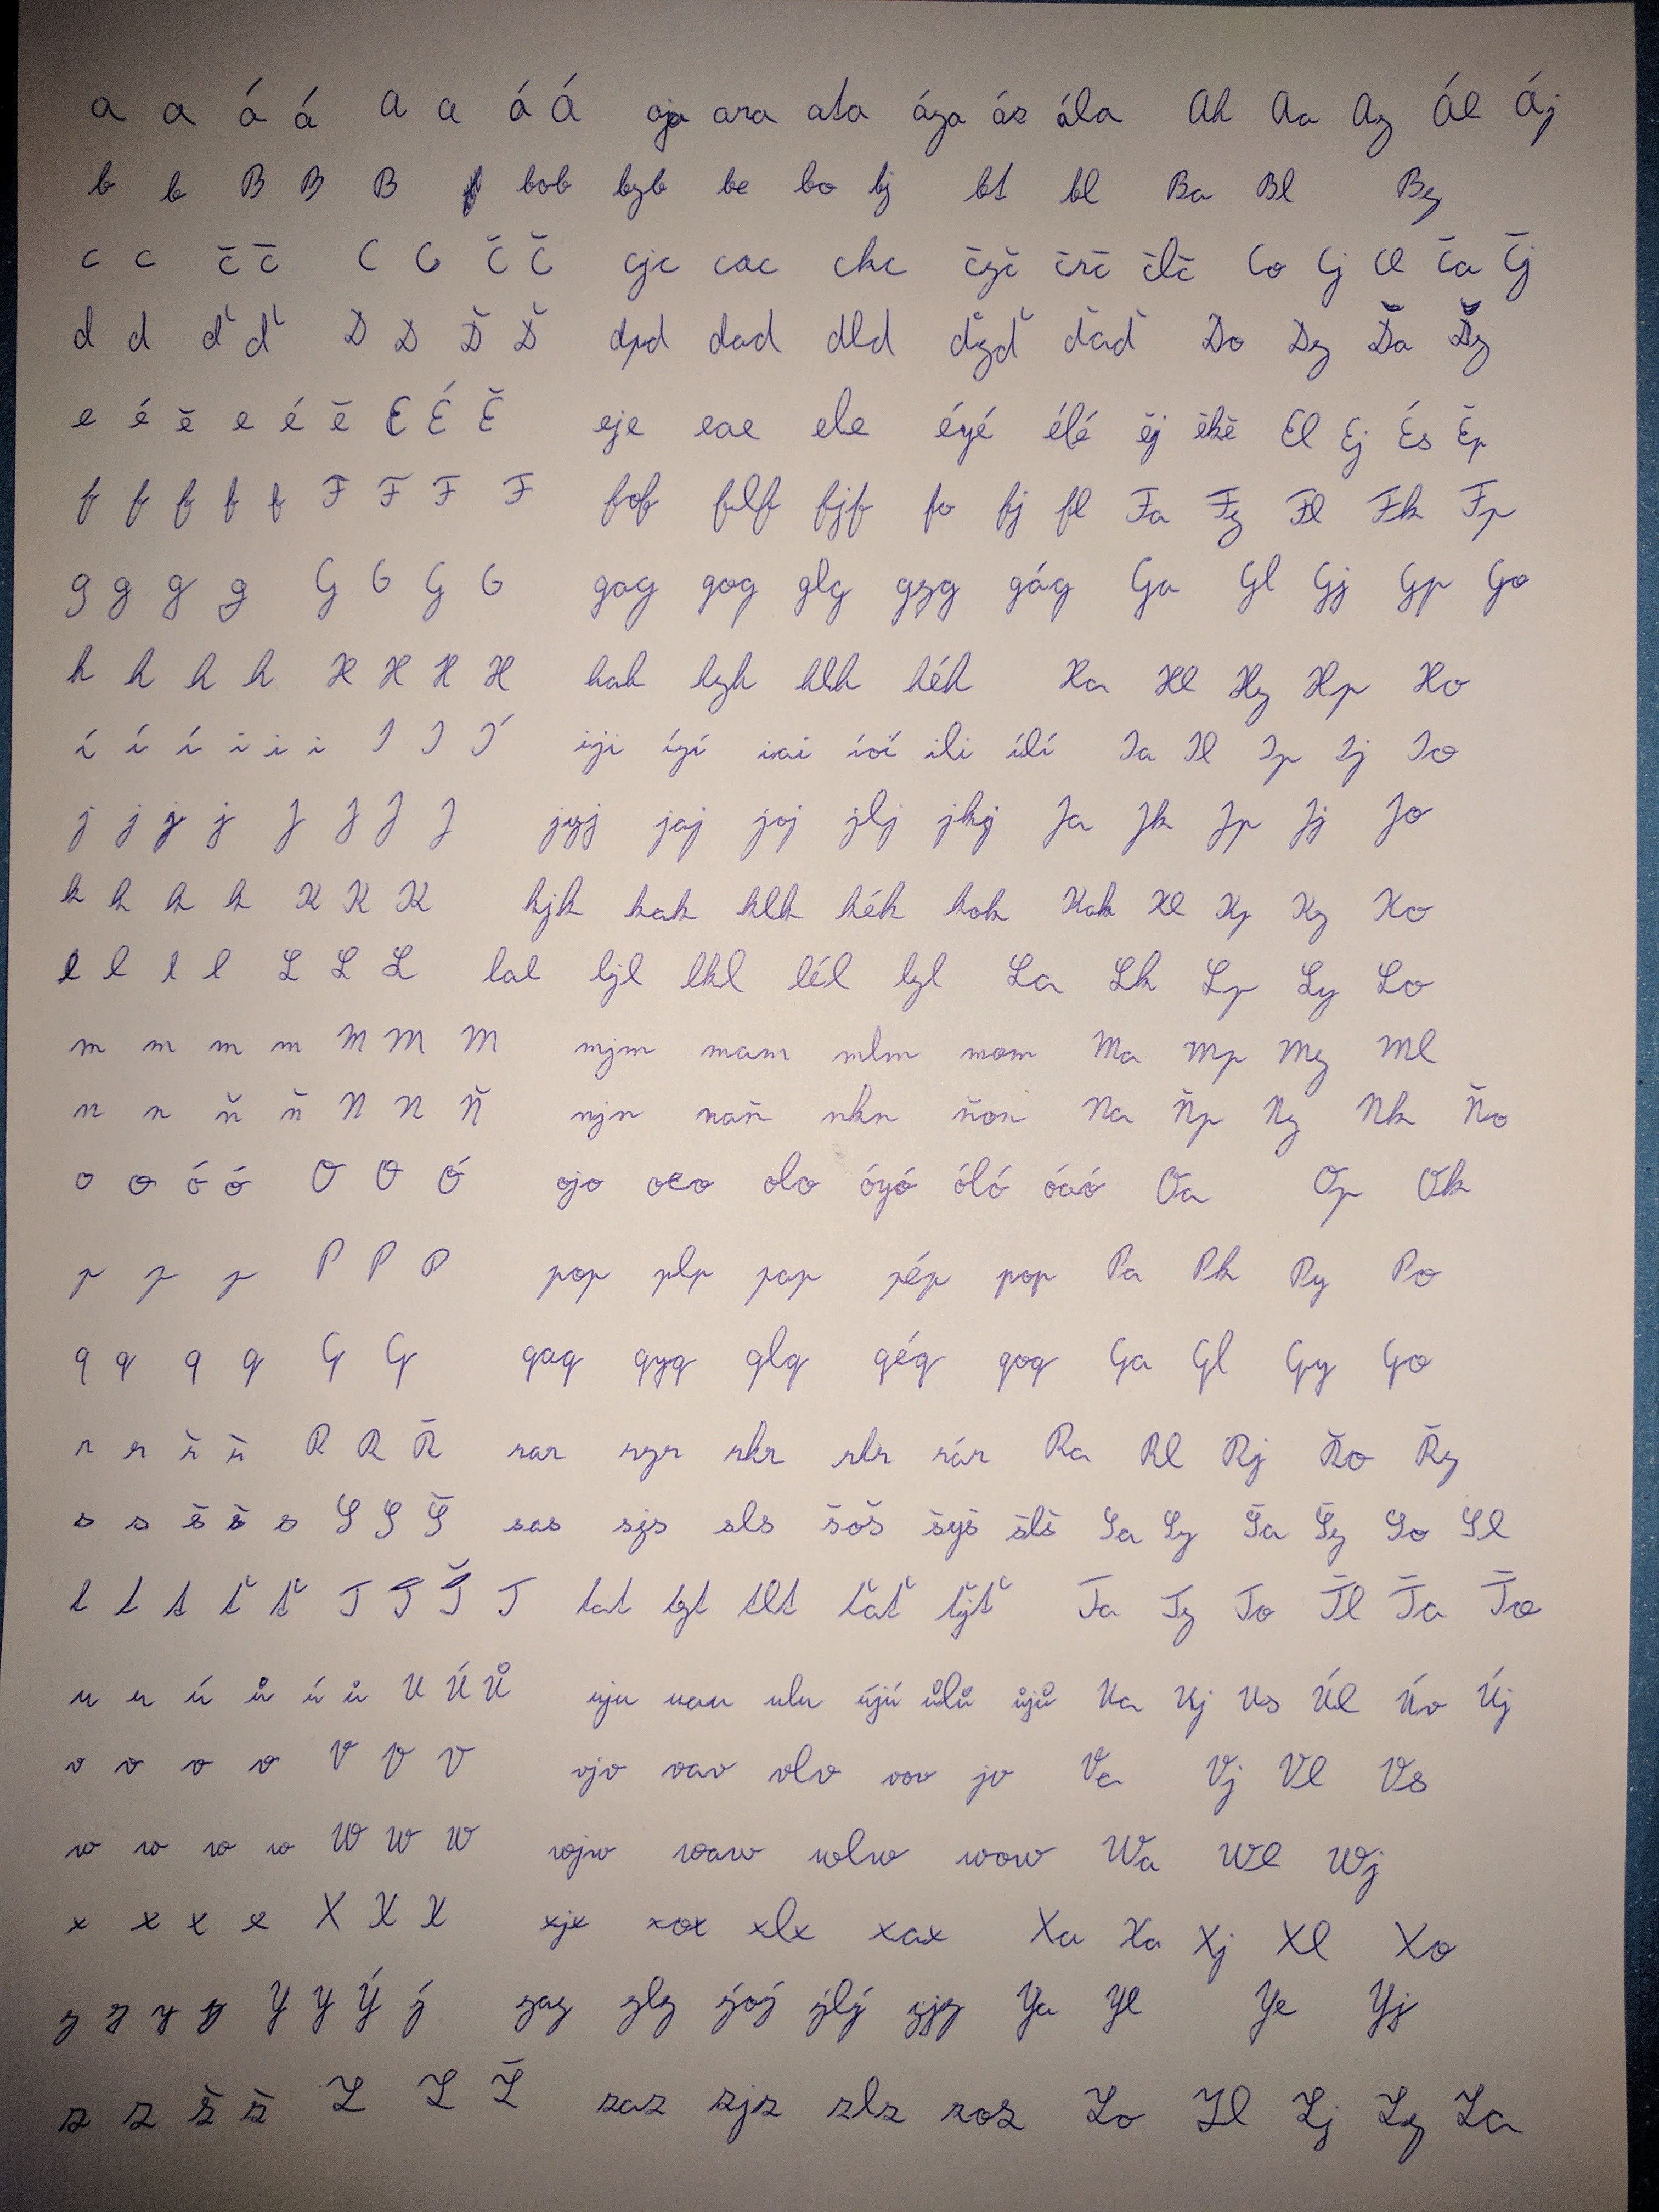 a a á á a a á Á aja ara ata áya ár ála Ah Aa Ay Ál Áj
b b B B B bob byb be bo bj bt bl Ba Bl By
c c č č C C Č Č cjc cac ckc čyč črč člč Co Cj Cl Ča Čj
d d ď ď D D Ď Ď dpd dad dld ďyď ďaď Do Dy Ďa Ďy
e é ě e é ě E É Ě eje eae ele éyé élé ěj ěkě El Ej És Ěp
f f f f f F F F F fof flf fjf fo fj fl Fa Fy Fl Fk Fp
g g g g G G G G gag gog glg gyg gág Ga Gl Gj Gp Go
h h h h H H H H hah hyh hlh héh Ha Hl Hy Hp Ho
í í í i i i I I Í iji íyí iai íoí ili ílí Ia Il Ip Ij Io
j j j j J J J J jyj jaj joj jlj jkj Ja Jk Jp Jj Jo
k k k k K K K kjk kak klk kék kok Kak Kl Kp Ky Ko
l l l l L L L lal ljl lkl lél lyl La Lk Lp Ly Lo
m m m m M M M mjm mam mlm mom Ma Mp My Ml
n n ň ň N N Ň njn naň nkn ňon Na Ňp Ny Nk Ňo
o o ó ó O O Ó ojo oeo olo óyó óló óaó Oa Op Ok
p p p P P P pop plp pap pép pop Pa Pk Py Po
q q q q Q Q qaq qyq qlq qéq qoq Qa Ql Qy Qo
r r ř ř R R Ř rar ryr rkr rlr rár Ra Rl Rj Řo Řy
s s š š s S S Š sas sjs sls šoš šyš šlš Sa Sy Ša Šy So Sl
t t t ť ť T T Ť T tat tyt tlt ťať ťjť Ta Ty To Ťl Ťa Ťo
u u ú ů ú ů U Ú Ů uju uau ulu újú ůlů ůjů Ua Uj Us Úl Úo Új
v v v v V V V vjv vav vlv vov jv Va Vj Vl Vs
w w w w W W W wjw waw wlw wow Wa Wl Wj
x x x x X X X xjx xox xlx xax Xa Xa Xj Xl Xo
y y y y Y Y Ý ý yay yly ýoý ýlý yjy Ya Yl Ye Yj
z z ž ž Z Z Ž zaz zjz zlz zoz Zo Zl Zj Zy Za